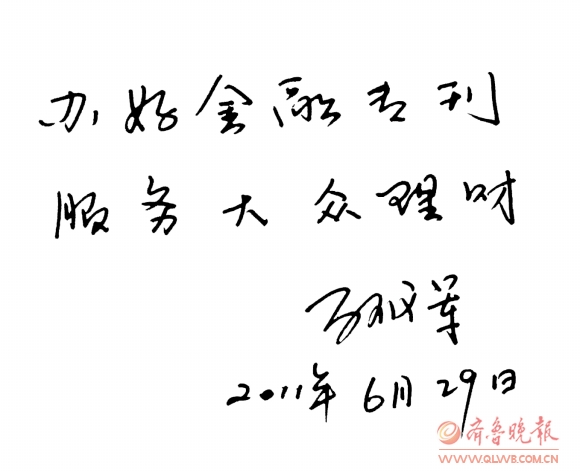 办好金融专刊
服务大众理财
2011年6月29日
齐鲁晚报
WWW.QLWB.COM.CN